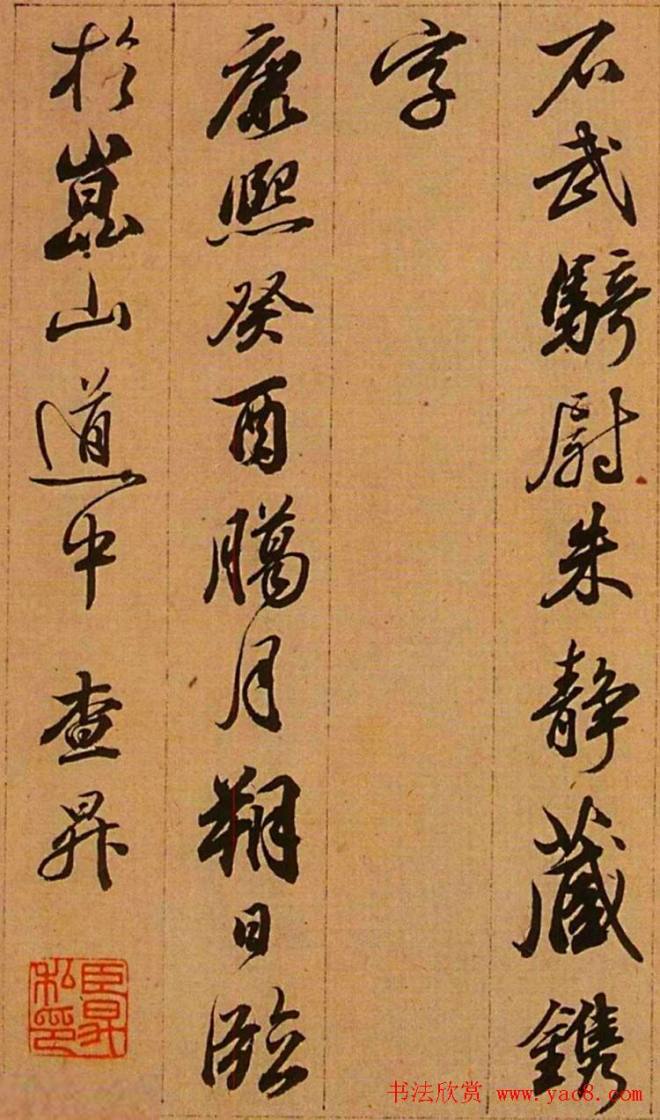 石武騎尉朱靜藏鐫
字
康熙癸酉臈月朔日臨
於嵩山道中 查昇
臣昇私印
书法欣赏 www.yac8.com